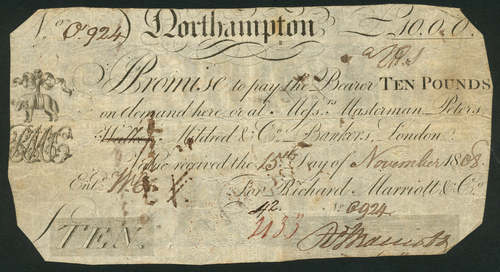 No. O.924 Northampton £10.0.0.
I Promise to pay the Bearer TEN POUNDS
on demand here or at Messrs Masterman Peters,
Mildred & Co. Bankers, London.
Value received the 15th day of November 1808
Entd. For Richard Marriott & Co.
42. No. O924
2135
TEN. R Marriott